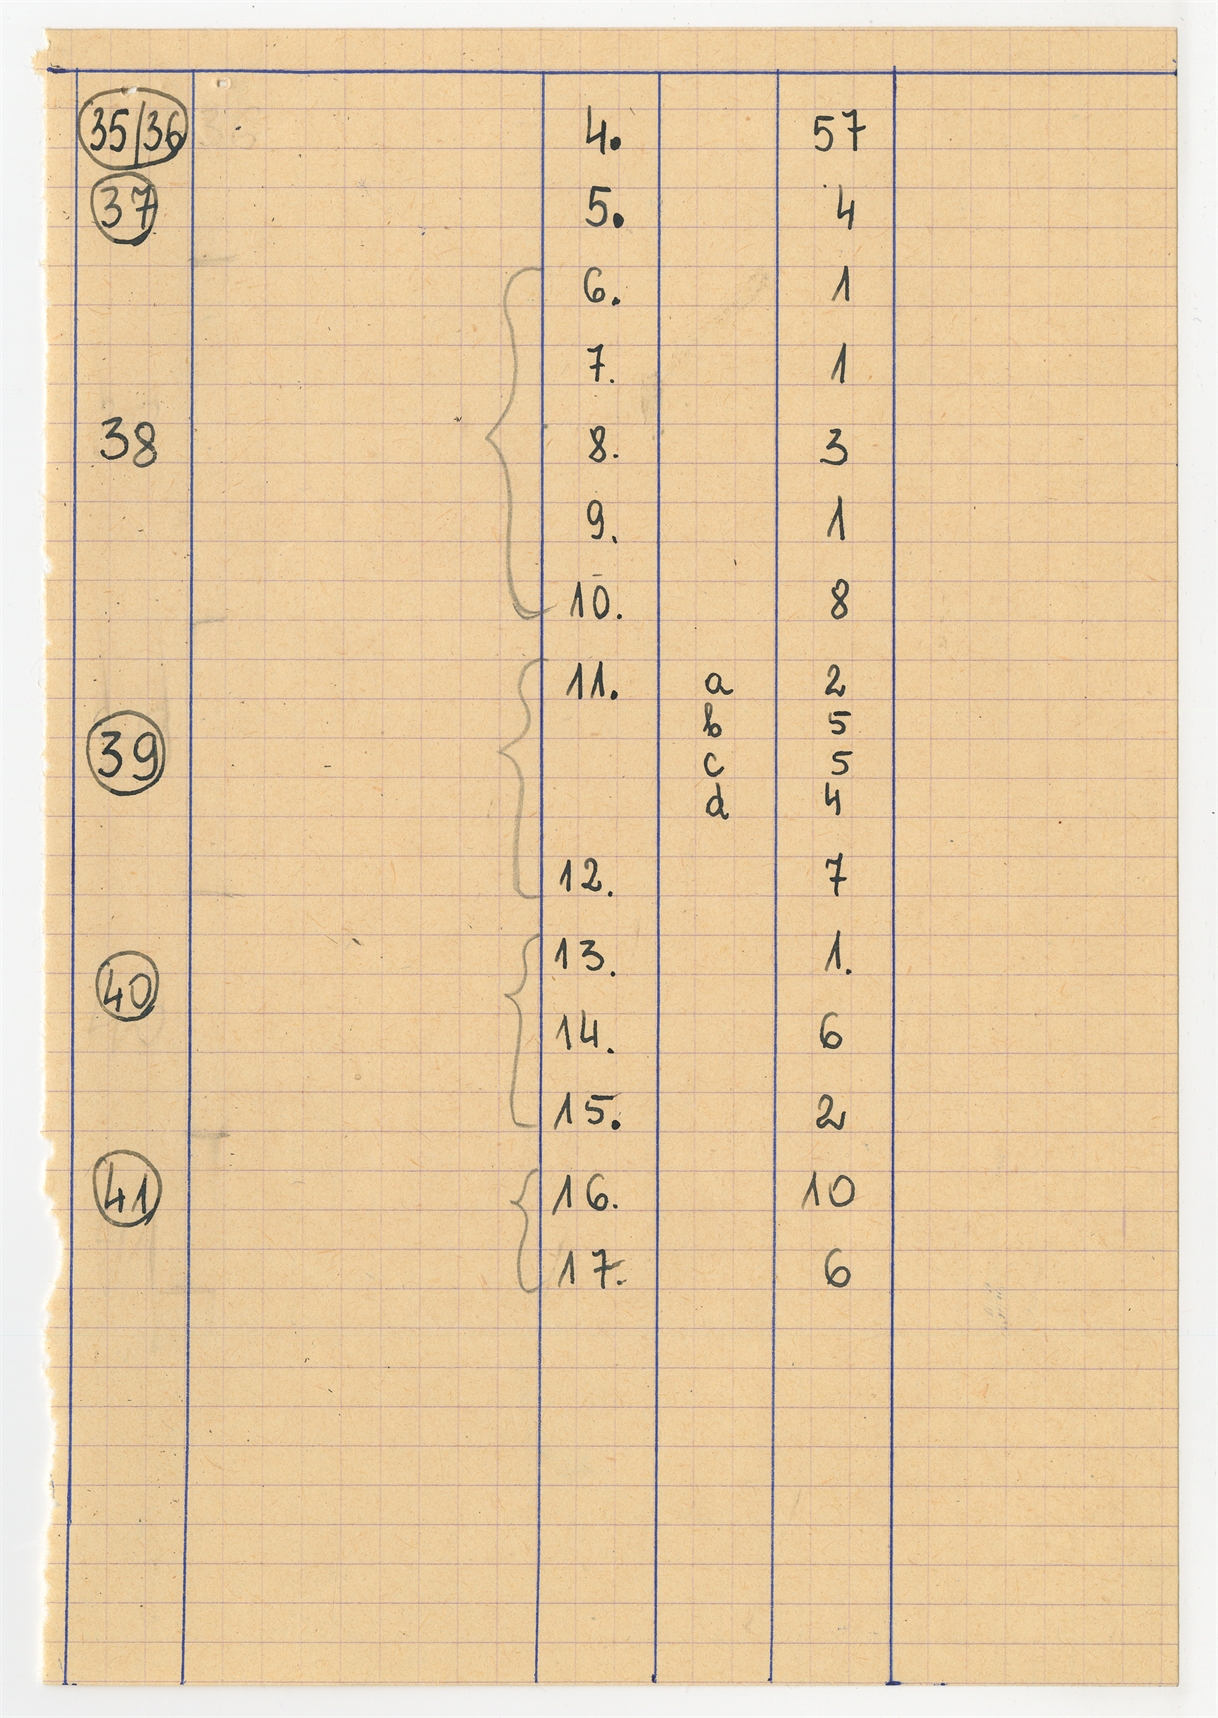 35/36 4. 57
37 5. 4
6. 1
7. 1
38 8. 3
9. 1
10. 8
11. a 2
b 5
39 c 5
d 4
12. 7
13. 1.
40
14. 6
15. 2
41 16. 10
17. 6